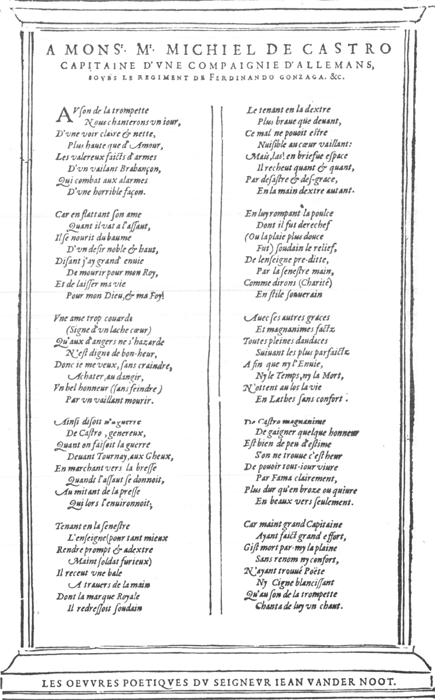 A MONSr. Mr. MICHIEL DE CASTRO
CAPITAINE D'VNE COMPAIGNIE D'ALLEMANS,
SOVBS LE REGIMENT DE FERDINANDO GONZAGA. &c.
AV son de la trompette
Nous chanterons vn iour,
D'vne voix claire & nette,
Plus haute que d'Amour,
Les valereux faicts d'armes
D'vn vailant Brabançon,
Qui combat aux alarmes
D'vne horrible façon.
Car en flattant son ame
Quant il vat a l'assaut,
Il se nourit du baume
D'vn desir noble & haut,
Disant j'ay grand' enuie
De mourir pour mon Roy,
Et de laisser ma vie
Pour mon Dieu, & ma Foy!
Vne ame trop couarde
(Signe d'vn lache cœur)
Qu'aux d'angers ne s'hazarde
N'est digne de bon-heur,
Donc ie me veux, sans craindre,
Achater, au dangir,
Vn bel honneur (sans feindre)
Par vn vaillant mourir.
Ainsi disoit n'aguerre
De Castro, genereux,
Quant on faisoit la guerre
Deuant Tournay, aux Gheux,
En marchant vers la bresse
Quandt l'assaut se donnoit,
Au mitant de la presse
Qui lors l'enuironnoit;
Tenant en la senestre
L'enseigne (pour tant mieux
Rendre prompt & adextre
Maint soldat furieux)
Il receut vne bale
A trauers de la main
Dont la marque Royale
Il redressoit soudain
Le tenant en la dextre
Plus braue que deuant,
Ce mal ne pouoit estre
Nuisible au cœur vaillant:
Mais, las! en briefue espace
Il recheut quant & quant,
Par desastre & des-grace,
En la main dextre autant.
En luy rompant la poulce
Dont il fut derechef
(Ou la plaie plus douce
Fut) soudain le relief,
De lenseigne pre-ditte,
Par la senestre main,
Comme dirons (Charité)
En stile souuerain
Auec ses autres graces
Et magnanimes faictz
Toutes pleines daudaces
Suiuant les plus parfaictz
A fin que ny l'Enuie,
Ny le Temps, ny la Mort,
N'ostent au los la vie
En Lethes sans confort.
De Castro magnanime
De gaigner quelque honneur
Est bien de peu d'estime
S'on ne trouue c'est heur
De pouoir tout-iour viure
Par Fama clairement,
Plus dur qu'en broze ou quiure
En beaux vers seulement.
Car maint grand Capitaine
Ayant faict grand effort,
Gist mort par-my la plaine
Sans renom ny confort,
N'ayant trouué Poëte
Ny Cigne blancissant
Qu'au son de la trompette
Chanta de luy vn chant.
LES OEVVRES POETIQVES DV SEIGNEVR IEAN VANDER NOOT.